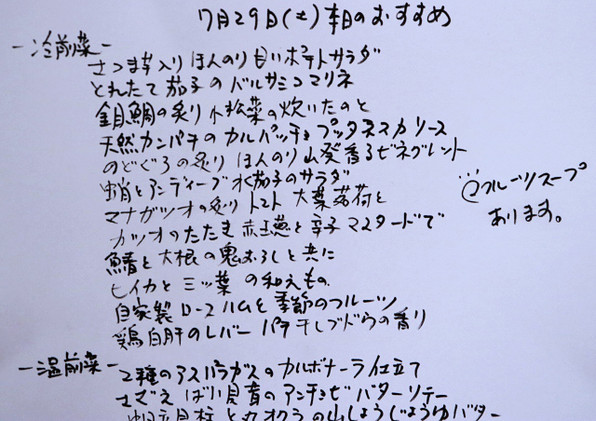 7月29日(土)本日のおすすめ
ー冷前菜ー
さつま芋入り ほんのり甘いポテトサラダ
とれたて茄子のバルサミコマリネ
金目鯛の炙り 小松菜の炊いたのと
天然カンパチのカルパッチョ プッタネスカソース
のどぐろの炙り ほんのり山葵香るビネグレット
蛸とアンディーブ 水茄子のサラダ
マナガツオの炙り トマト 大葉 茗荷と
カツオのたたき 赤玉葱と辛子マスタードで
鯖と大根の鬼おろしと共に
ヒイカと三ッ葉の和えもの
自家製ロースハムと季節のフルーツ
鶏白肝のレバーパテ 干しブドウの香り
フルーツスープ
あります。
ー温前菜ー
2種のアスパラガスのカルボナーラ仕立て
さざえ ばい貝 青のアンチョビバターソテー
帆立貝柱と丸オクラの山しょうじょうゆバター